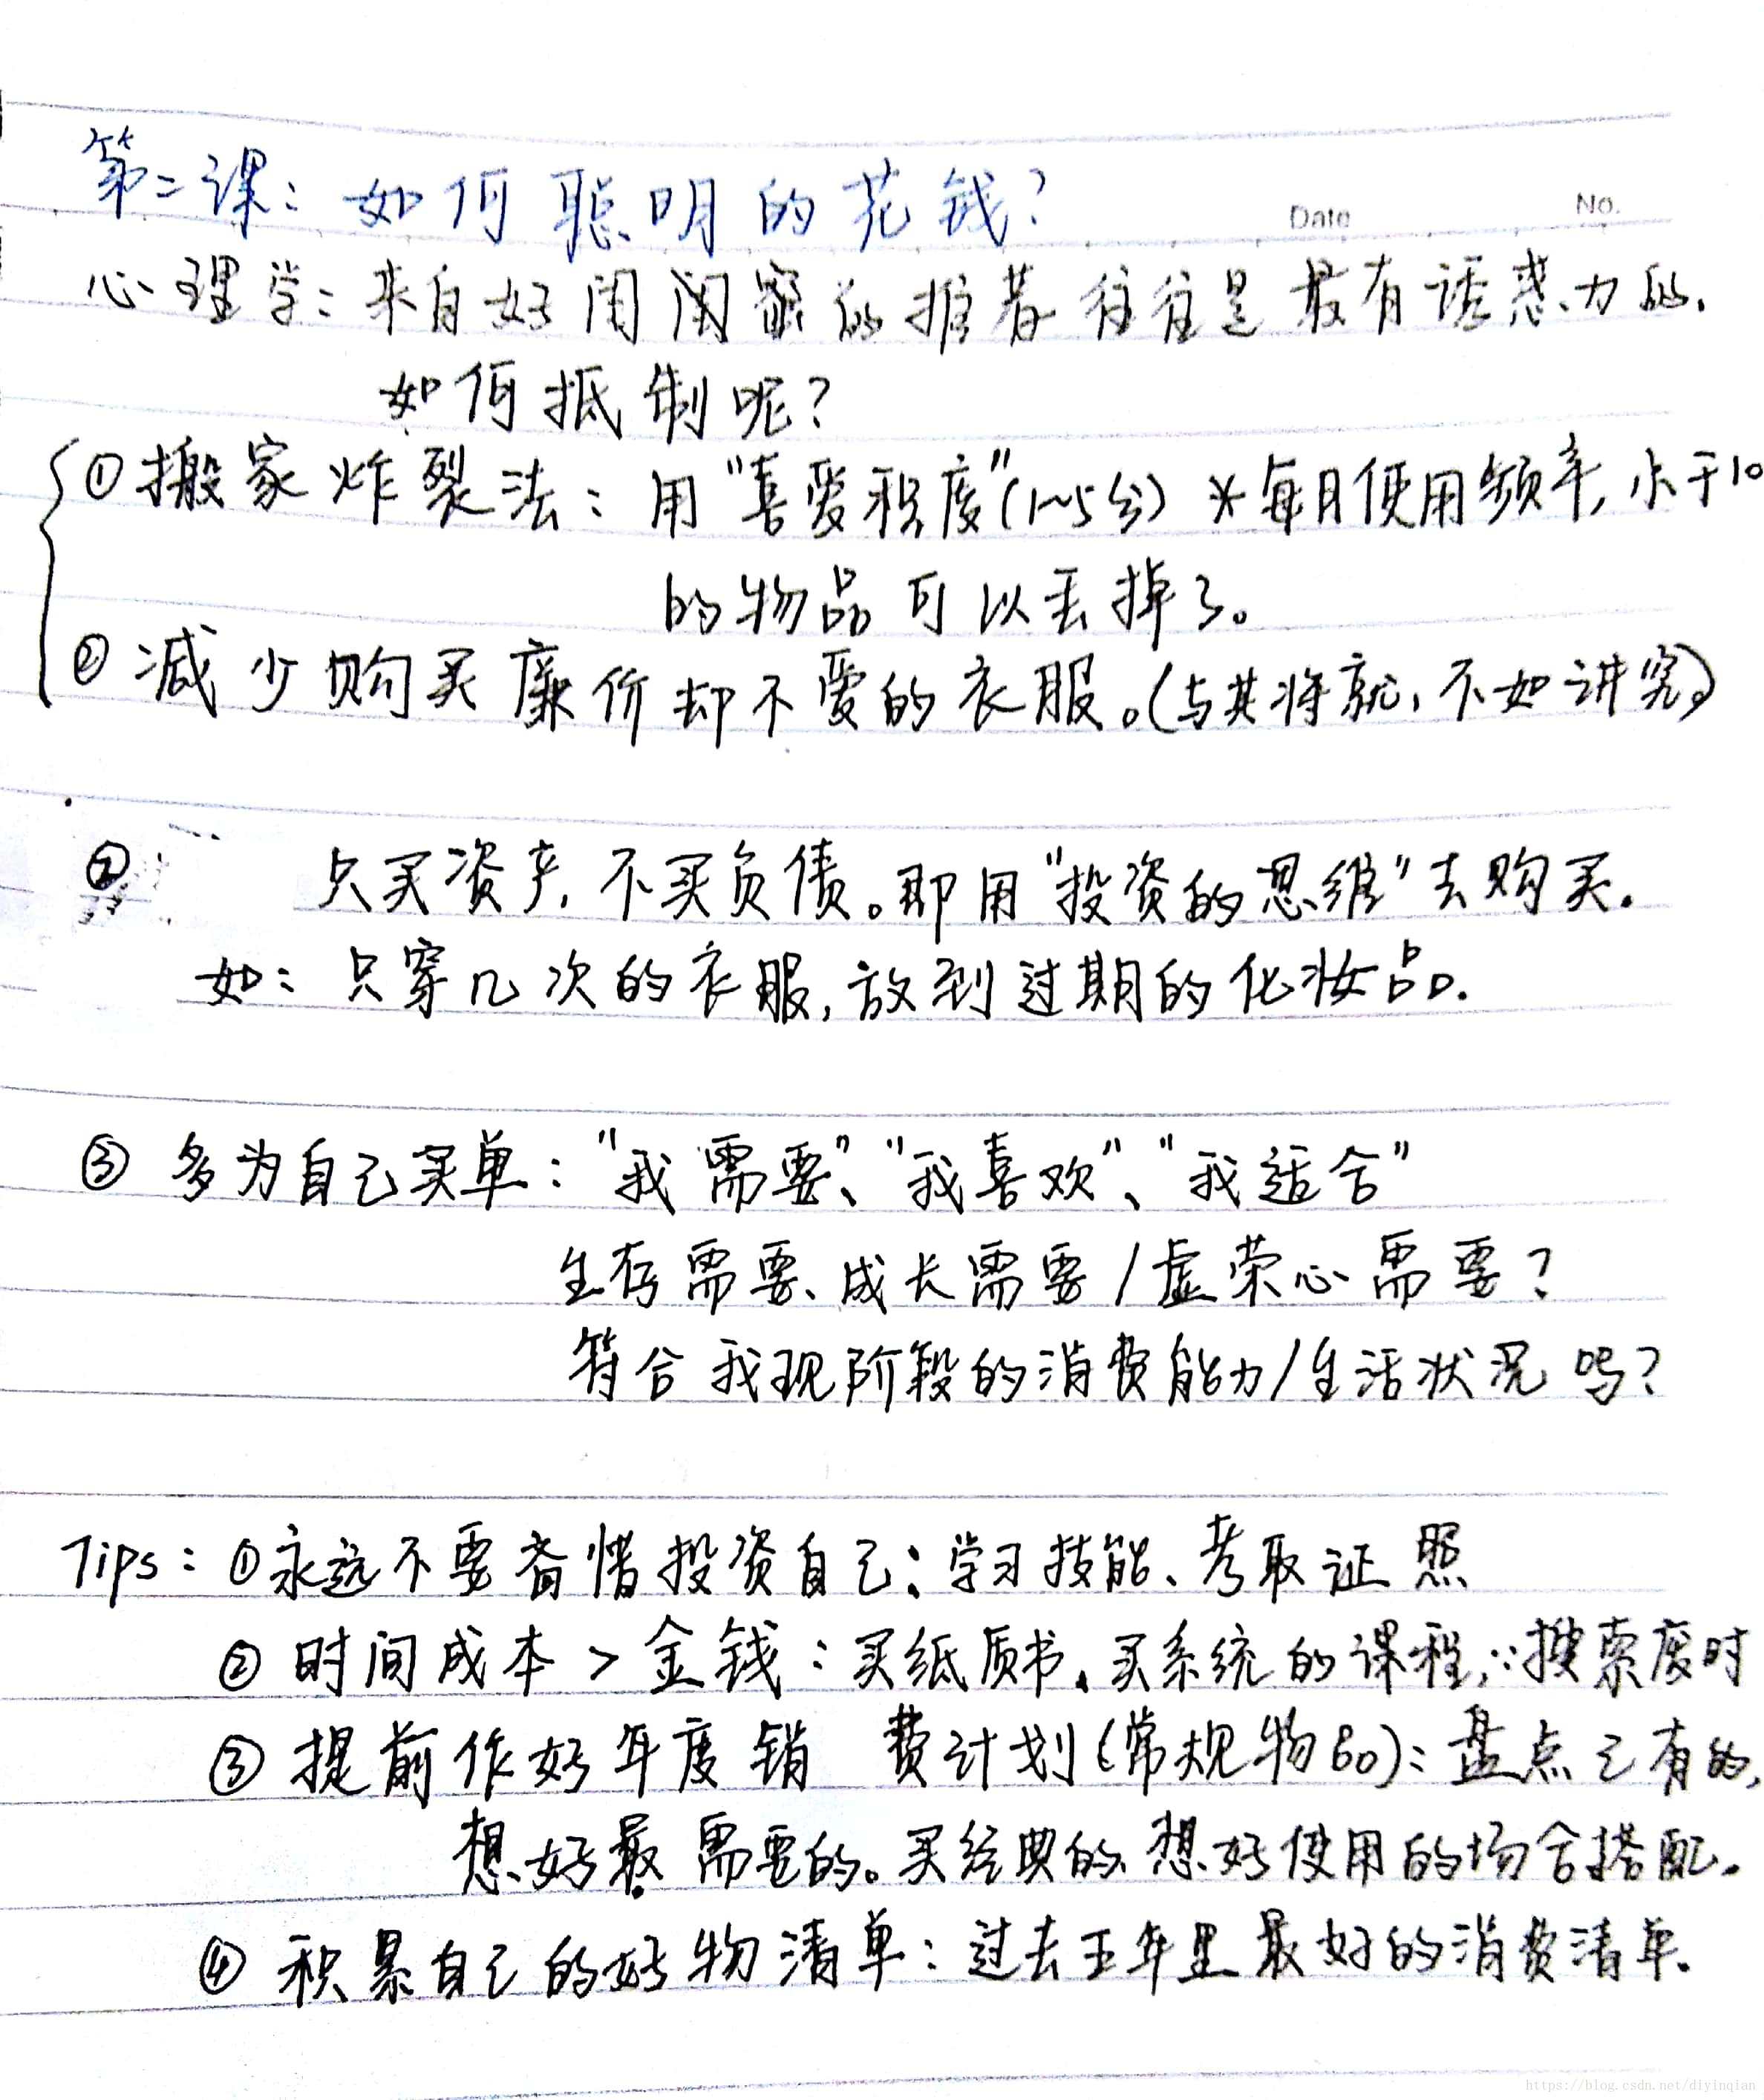 第二课：如何聪明的花钱？
Date No.
心理学：来自好闺闺蜜的推荐往往是最有诱惑力的.
如何抵制呢？
①搬家炸裂法：用"喜爱程度"(1~5分)*每月使用频率,小于10
的物品可以丢掉了。
②减少购买廉价却不爱的衣服。(与其将就,不如讲究)
② 只买资产,不买负债。即用"投资的思维"去购买.
如：只穿几次的衣服,放到过期的化妆品.
③多为自己买单："我需要"、"我喜欢"、"我适合"
生存需要、成长需要/虚荣心需要？
符合我现阶段的消费能力/生活状况吗？
Tips：①永远不要吝惜投资自己：学习技能、考取证照
②时间成本>金钱：买纸质书,买系统的课程,∵搜索废时
③提前作好年度销 费计划(常规物品)：盘点已有的,
想好最需要的。买经典的.想好使用的场合搭配.
④积累自己的好物清单：过去五年里最好的消费清单.
https://blog.csdn.net/diyinqian